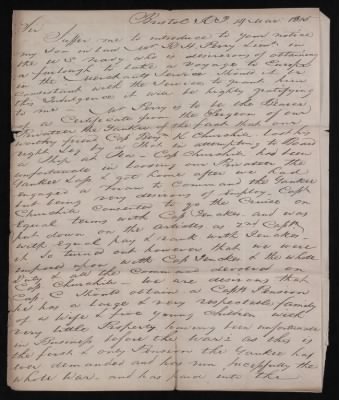 Bristol R.I. 19 Mar. 1815
Sir
Suffer me to introduce to your notice
my Son in Law Mr R. H. Perry Lieut. in
the U S Navy who is desirous of obtaining
a furlough to make a Voyage to Europe
in the Merchants Service Should it be
Consistant with the Service to grant him
this Indulgence it will be highly gratifying
to me — Mr Perry is to be the Bearer
of a Certificate from the Surgeon of our
Privateer the Yankee of the fact that our
worthy friend Cap Benj K Churchill lost his
right Leg by a Shot in attempting to board
a Ship at Sea — Cap Churchill has been
unfortunate in loosing our Privateer the
Yankee & got home after we had
engaged a man to Command the Yankee
but being very desirous of employ Capt
Churchill Consented to go the Cruise on
Equal terms with Cap Jenckes and was
put down on the articles as 2nd Captn
with Equal pay & rank with Jenckes
it So turned out however that we were
imposed upon with Cap Jenckes & the whole
Duty & all the Command devolved on
Cap Churchill — We are desirous that
Cap C Should obtain a Captn Pension
he has a large & very respectable family
of a Wife & five young Children with
very little Property having been unfortunate
in Business before the War & as this is
the first & only Pension the Yankee has
ever demanded and has run Sucessfully the
whole War and has paid into the